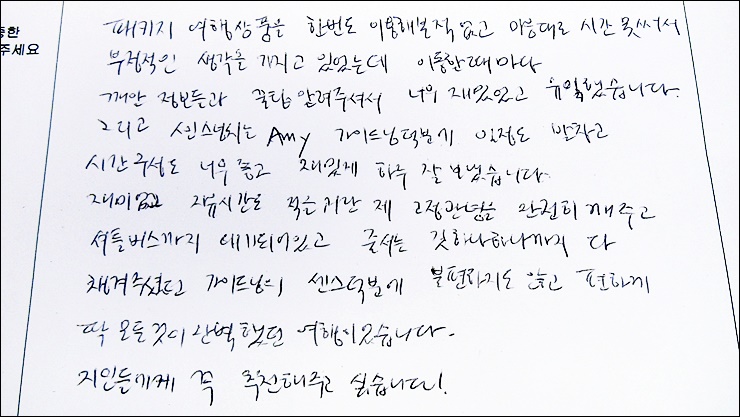 한
주세요
패키지 여행상품은 한번도 이용해본적 없고 마음대로 시간 못써서
부정적인 생각을 가지고 있었는데 이동할때마다
깨알 정보들과 꿀팁 알려주셔서 너무 재밌었고 유익했습니다.
그리고 센스넘치는 Amy 가이드님덕분에 일정도 알차고
시간 구성도 너무 좋고 재밌게 하루 잘 보냈습니다.
재미없고 자유시간도 적을거란 제 고정관념을 완전히 깨주고
셔틀버스까지 대기되어있고 줄서는 것하나하나까지 다
챙겨주셨고 가이드님의 센스덕분에 불편하지도 않고 편하게
딱 모든것이 완벽했던 여행이었습니다.
지인들에게 꼭 추천해주고 싶습니다!